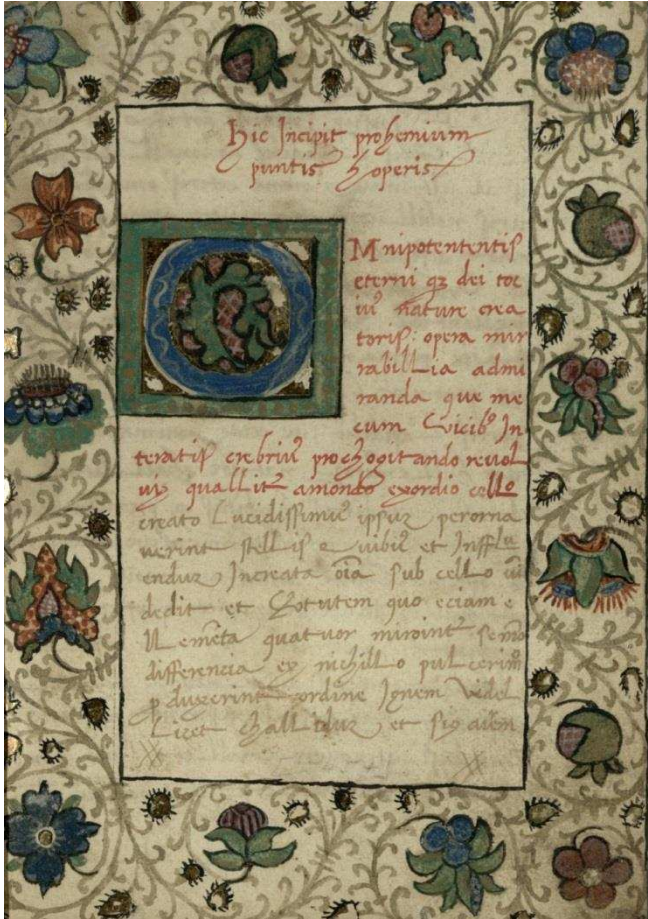 Hic Incipit prohemium
puntis hoperis
OMnipotententis
eterni qz dei toc
ius nature crea
toris: opera mir
rabillia admi
randa que me
cum vicib9 In
teratis crebrius prochogitando revol
vix quallit amondo exordio cello
creato Lucidissimus ipsuz perorna
verint stellis e vibus et Infflu
enduz Increata oia sub cello
dedit et Cotutem quo eciam e
ll emeta quatuor miroint
differencia ex nichillo pulcerim
p duxerint exordine Ignem videl
Licet Callidus et six aiem